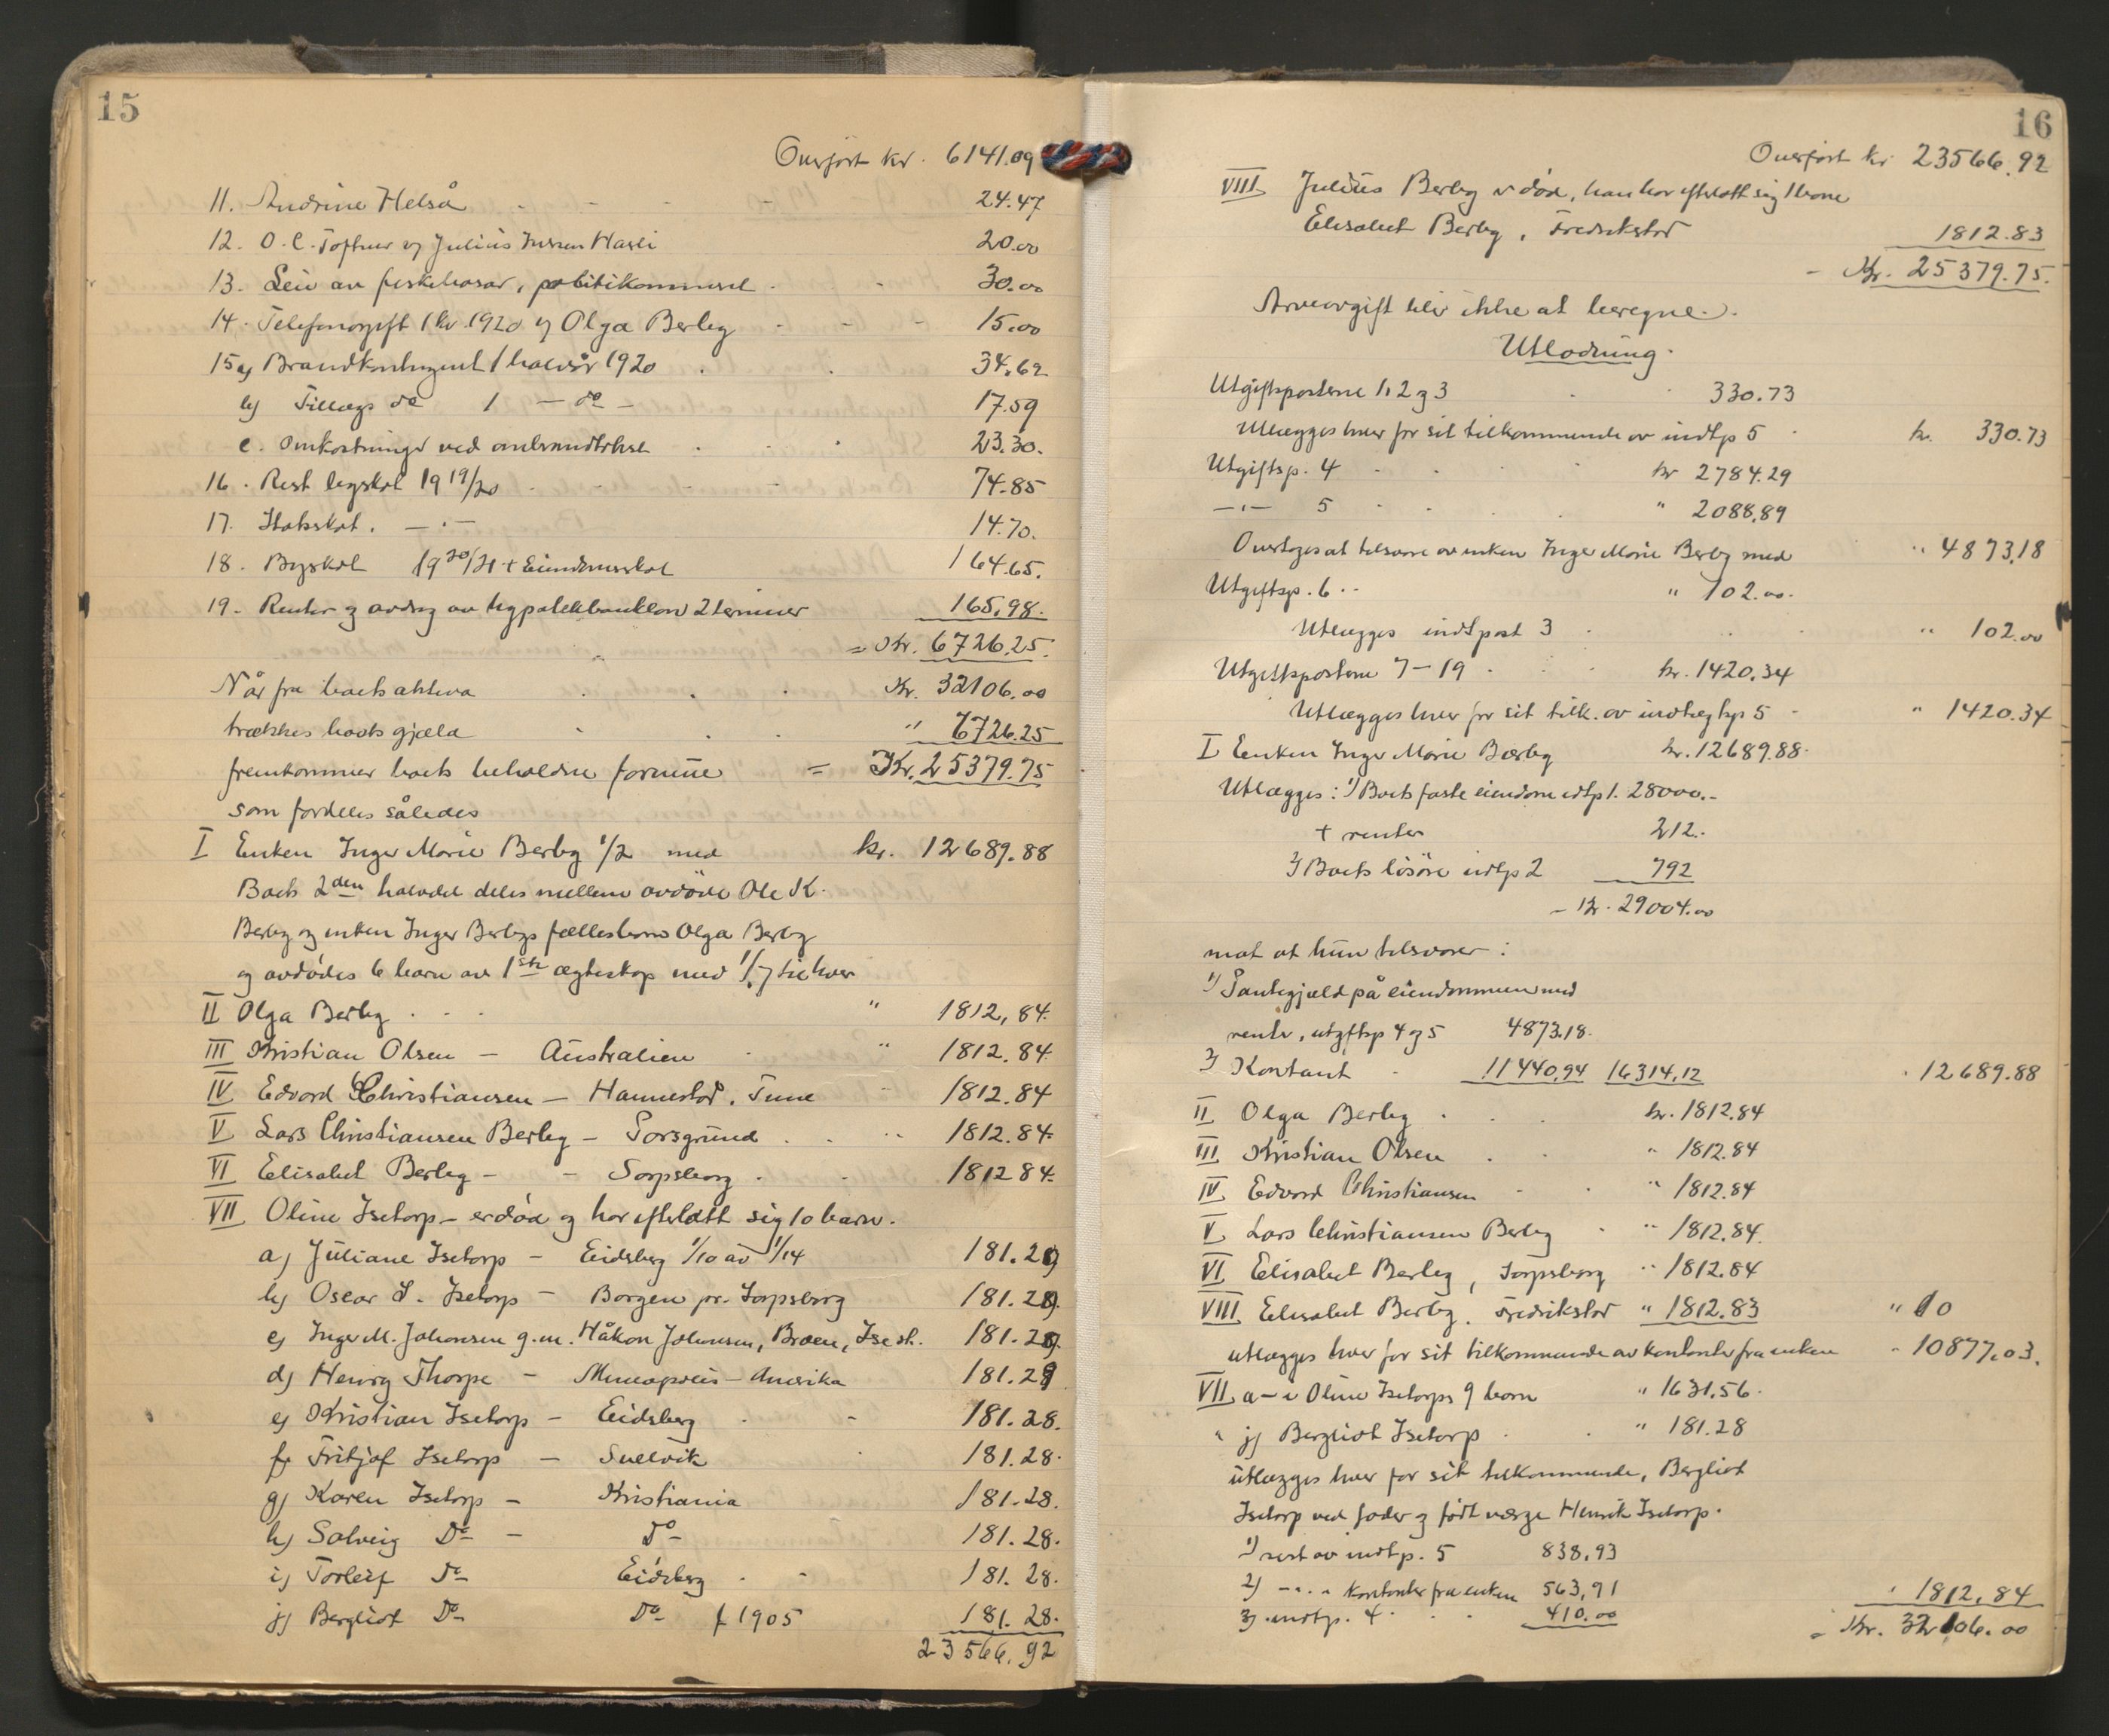 15
Overført kr. 6141.09
11. Andrine Helså - - - - 24.47
12. O. C. Toftner og Julius Jensen Hasli 20.00
13. Leie av fiskebasar, politikommerset - - 30.00
14. Telefonavgift 1 kv. 1920 og Olga Berby - - - 15.00
15 a) Brandkontingent 1 halvår 1920 . . 34.62
b) Tillægs do 1 — do — 17.59
c. Omkostninger ved . . . 23.30.
16. Rest byskat 1919/20 - - - - 74.85
17. Statsskat. — " — 14.70.
18. Byskat 1920/21 + Eiendomsskat 164.65.
19. Renter og avdrag av hypotekbanklån 2 terminer 165.98.
= Kr. 6726.25.
Når fra boets aktiva . . . Kr. 32106.00
trækkes boets gjæld . . . " 6726.25
fremkommer boets beholdne formue = Kr. 25379.75
som fordeles således
I Enken Inger Marie Berby 1/2 med kr. 12689.88
Boets 2den halvdel deles mellem avdøde Ole K.
Berby og enken Inger Berbys fællesbarn Olga Berby
og avdødes 6 barn av 1ste ægteskap med 1/7 til hver
II Olga Berby . - - " 1812,84.
III Kristian Olsen — Australien - " 1812.84.
IV Edvard Christiansen — Hannestad, Tune - 1812.84
V Lars Christiansen Berby — Porsgrund . . " 1812.84.
VI Elisabet Berby - - Sarpsborg . - 1812 84.
VII Oline Isetorp — er død og har efterlatt sig 10 barn.
a) Juliane Isetorp — Eidsberg 1/10 av 1/14 181.29
b) Oscar I. Isetorp — Borgen pr. Sarpsborg 181.29.
c) Inger M. Johansen g.m. Håkon Johansen, Braen, Ise st. 181.29.
d) Henry Thorpe — Minneapolis — Amerika 181.29
e) Kristian Isetorp — Eidsberg - - 181.28.
f) Fritjof Isetorp — Svelvik . 181.28.
g) Karen Isetorp — Kristiania 181.28.
h) Solveig Do — Do 181.28.
i) Torleif Do Eidsberg - - 181.28.
j) Bergliot Do Do f 1905 181.28.
23566.92
16
Overført kr 23566.92
VIII Julius Berby er død, han har efterlatt sig 1 barn
Elisabet Berby, Fredrikstad 1812.83
= Kr. 25379.75.
Arveavgift blir ikke at beregne.
Utlodning.
Utgiftsposterne 1, 2 og 3 . . 330.73
Utlægges hver for sit tilkommende av indtp 5 . kr. 330.73
Utgiftsp. 4 - . . . kr 2784.29
— " — 5 - . . . " 2088.89
Overtages at tilsvare av enken Inger Marie Berby med " 4873.18
Utgiftsp. 6 . . " 102.00.
Utlægges indtpost 3 . . . . " 102.00
Utgiftsposterne 7—19 . . . kr. 1420.34
Utlægges hver for sit tilk. av indtægtsp 5 - " 1420.34
I Enken Inger Marie Berby kr. 12689.88.
Utlægges: 1) Boets faste eiendom indtp 1. 28000.-
+ renter 212.
2) Boets løsøre indtp 2 792
= Kr. 29004.00
mot at hun tilsvarer:
1) Pantegjæld på eiendommen med
renter, utgftsp 4 og 5 4873.18.
2) Kontant - 11440.94 16314.12 . 12689.88
II Olga Berby . . . kr. 1812.84
III Kristian Olsen . . " 1812.84
IV Edvard Christiansen - . " 1812.84
V Lars Christiansen Berby . " 1812.84.
VI Elisabet Berby, Sarpsborg " 1812.84
VIII Elisabet Berby. Fredrikstad " 1812.83 " 10
utlægges hver for sit tilkommende av kontanter fra enken " 10877.03.
VII a—i Oline Isetorps 9 barn " 1631.56.
" j) Bergliot Isetorp . . " 181.28
utlægges hver for sit tilkommende, Bergliot
Isetorp ved fader og født værge Henrik Isetorp.
1) rest av indtp. 5 838,93
2) — " — kontanter fra enken 563,91
3) indtp. 4 . . . 410.00 " 1812,84
= Kr. 32106.00